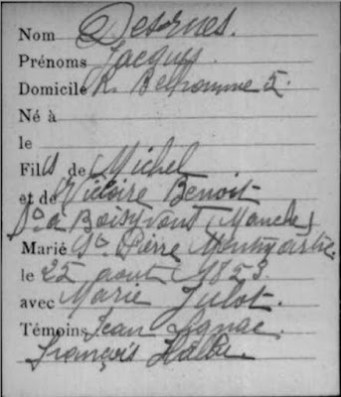 Nom Desornes.
Prénoms Jacques
Domicile R. Belhomme 5.
Né à
le
Fils de Michel
et de Victoire Benoit
à Boisyvont (Manche)
Marié St Pierre Montmartre.
le 25 aout 1853.
avec Marie Julot.
Témoins Jean Lignac.
François